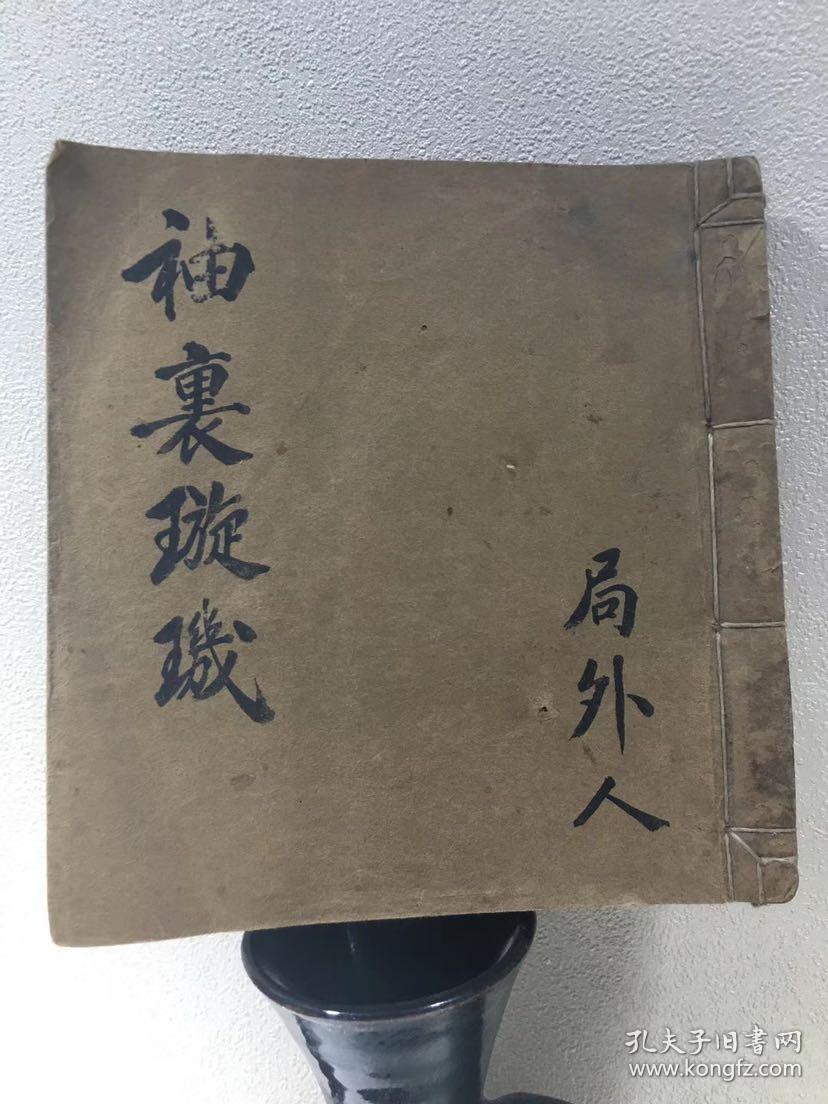 袖裏璇璣
局外人
孔夫子旧书网
www.kongfz.com